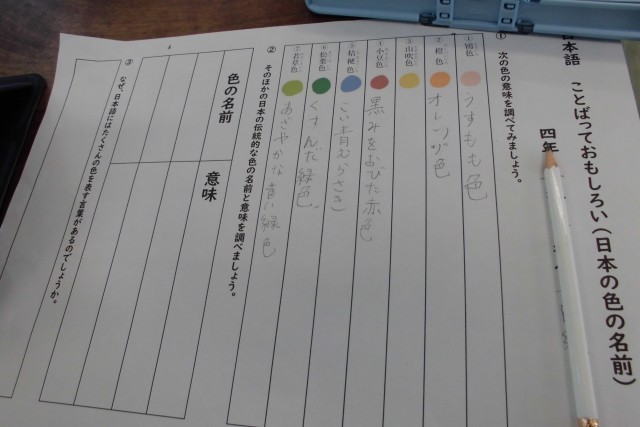 日本語 ことばっておもしろい(日本の色の名前)
四年
① 次の色の意味を調べてみましょう。
① 鴇色 うすもも色
② 橙色 オレンジ色
③ 山吹色
④ 小豆色 黒みをおびた赤色
⑤ 桔梗色 こい青むらさき
⑥ 松葉色 くすんだ緑色。
⑦ 若草色 あざやかな 黄緑色
② そのほかの日本の伝統的な色の名前と意味を調べましょう。
色の名前 意味
③ なぜ、日本語にはたくさんの色を表す言葉があるのでしょうか。